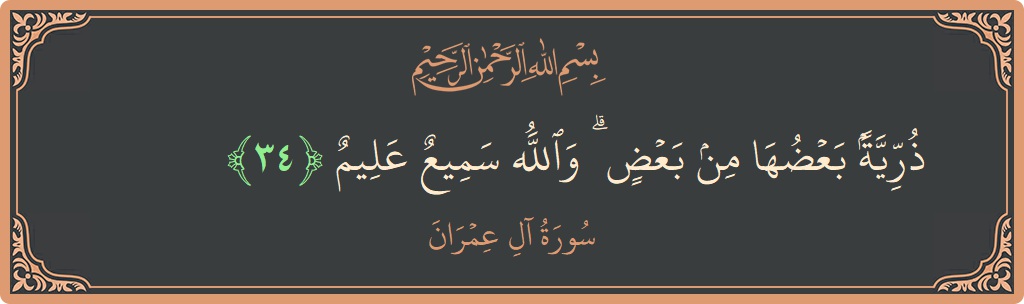 بِسْمِ اللَّهِ الرَّحْمَٰنِ الرَّحِيمِ
ذُرِّيَّةًۢ بَعْضُهَا مِنۢ بَعْضٍ ۗ وَٱللَّهُ سَمِيعٌ عَلِيمٌ ﴿٣٤﴾
سُورَةُ آلِ عِمْرَانَ